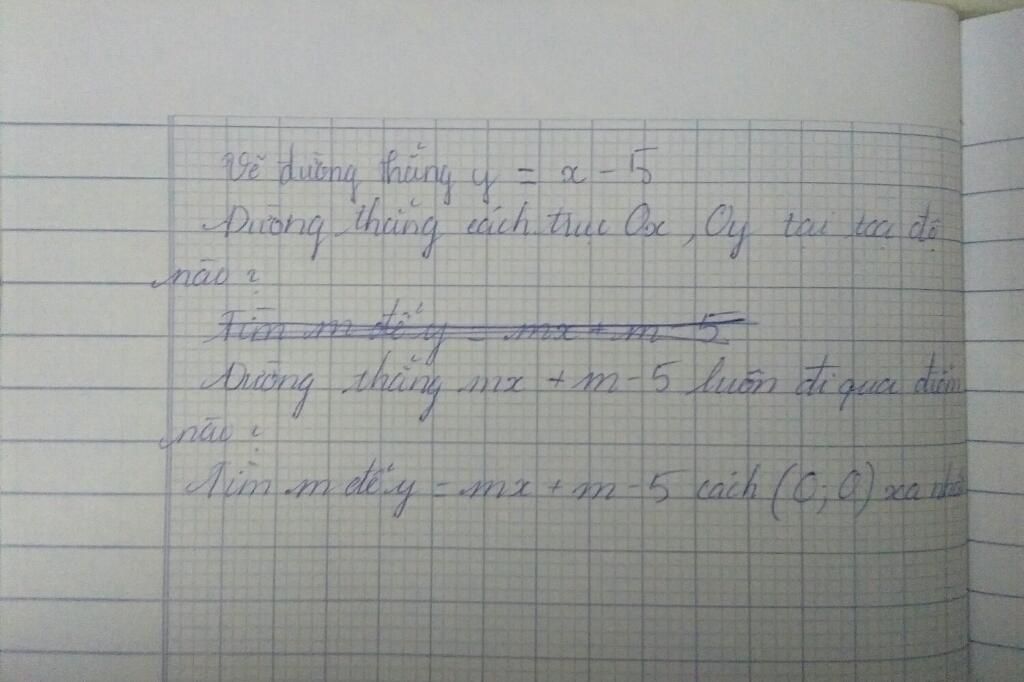 Vẽ đường thẳng y = x - 5
Đường thẳng cách trục Ox, Oy tại toạ độ
nào?
Tìm m để y = mx + m - 5
Đường thẳng mx + m - 5 luôn đi qua điểm
nào?
Tìm m để y = mx + m - 5 cách (0; 0) xa nhất